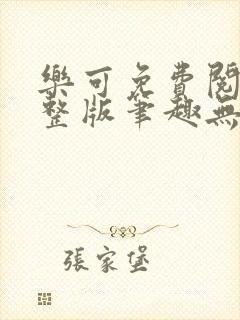 樂可免費閱
整版筆趣無
張家堡